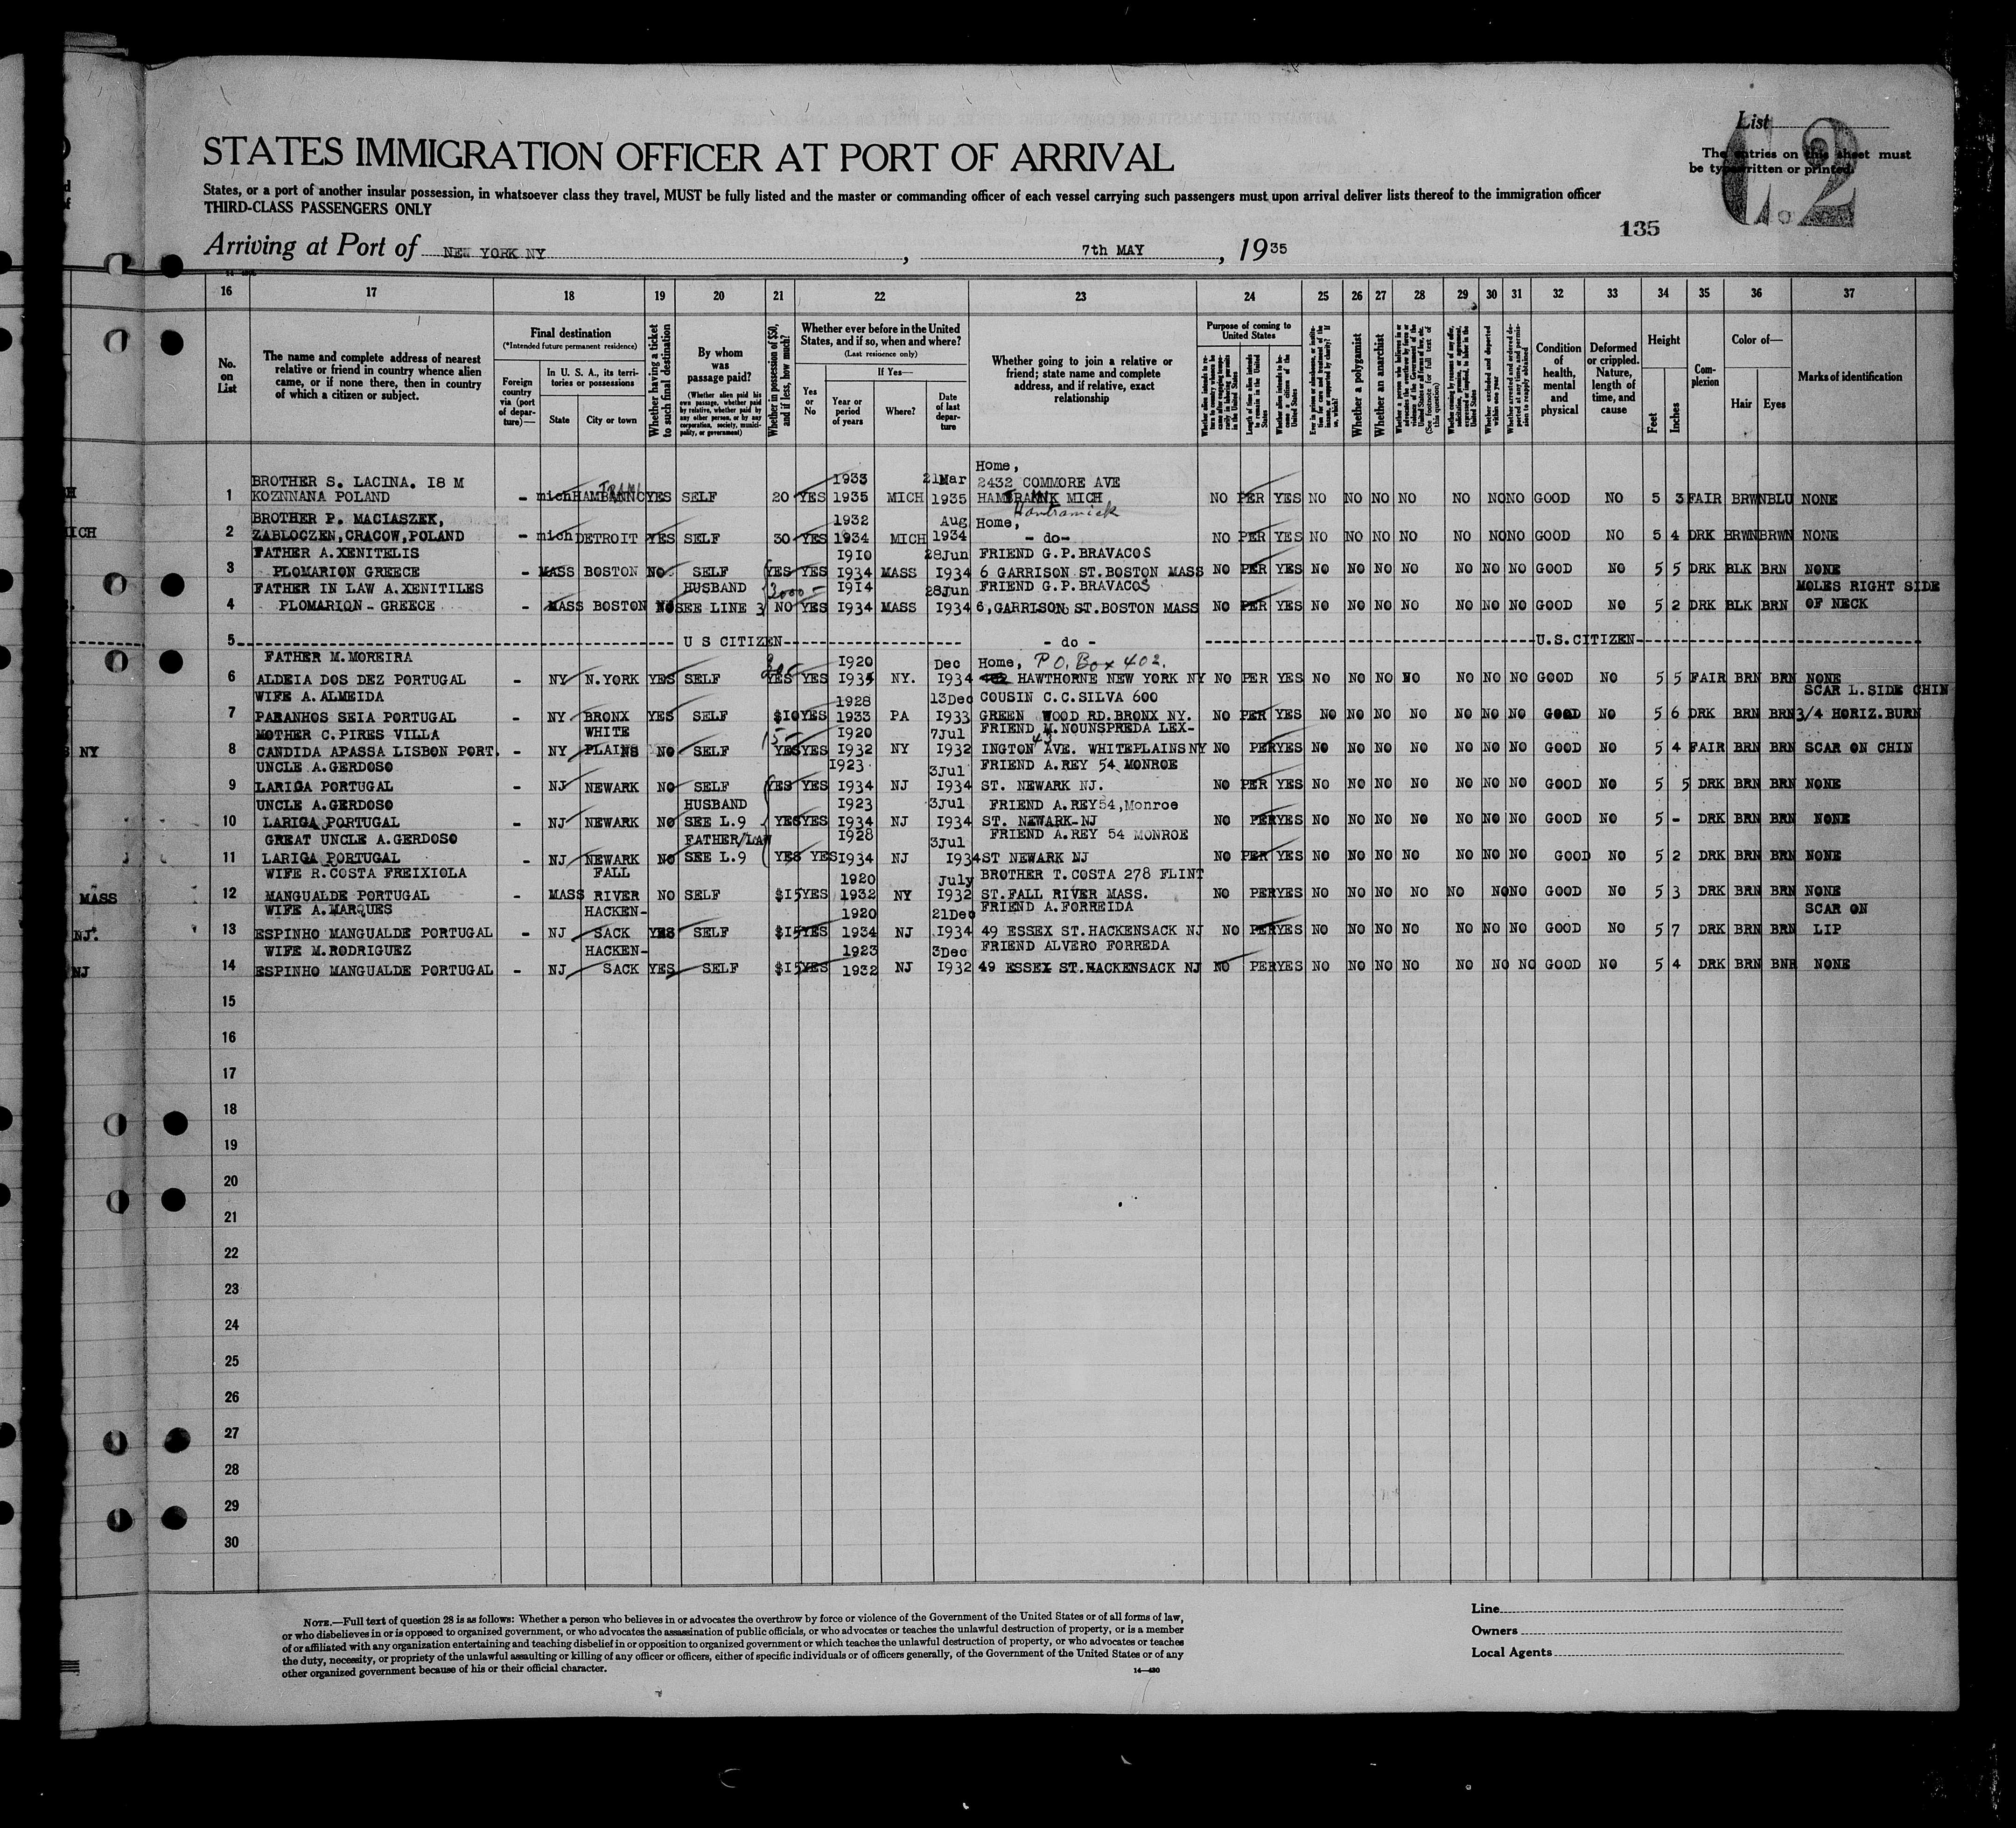 List
The entries on this sheet must
be typewritten or printed.
C.2
135
STATES IMMIGRATION OFFICER AT PORT OF ARRIVAL
States, or a port of another insular possession, in whatsoever class they travel, MUST be fully listed and the master or commanding officer of each vessel carrying such passengers must upon arrival deliver lists thereof to the immigration officer
THIRD-CLASS PASSENGERS ONLY
Arriving at Port of NEW YORK NY, 7th MAY, 1935
16 17 18 19 20 21 22 23 24 25 26 27 28 29 30 31 32 33 34 35 36 37
No. on List
The name and complete address of nearest relative or friend in country whence alien came, or if none there, then in country of which a citizen or subject.
Final destination
(*Intended future permanent residence)
Foreign country via (port of departure)—
In U. S. A., its territories or possessions
State City or town
Whether having a ticket to such final destination
By whom was passage paid?
(Whether alien paid his own passage, whether paid by relative, whether paid by any other person, or by any corporation, society, municipality, or government)
Whether in possession of $50, and if less, how much?
Whether ever before in the United States, and if so, when and where?
(Last residence only)
Yes or No
If Yes—
Year or period of years
Where?
Date of last departure
Whether going to join a relative or friend; state name and complete address, and if relative, exact relationship
Purpose of coming to United States
Length of time alien intends to remain in the United States
Whether alien intends to become a citizen of the United States
Whether a polygamist
Whether an anarchist
Condition of health, mental and physical
Deformed or crippled. Nature, length of time, and cause
Height
Feet Inches
Complexion
Color of—
Hair Eyes
Marks of identification
BROTHER S. LACINA. I8 M 1933 21Mar Home, 2432 COMMORE AVE
1 KOZNNANA POLAND - mich HAMBRANNC TRAM YES SELF 20 YES 1935 MICH 1935 HAMTRAMNK MICH NO PER YES NO NO NO NO NO NO NO GOOD NO 5 3 FAIR BRWN BLU NONE
Hamtramick
BROTHER P. MACIASZEK, 1932 Aug Home,
2 ZABLOCZEN, CRACOW, POLAND - mich DETROIT YES SELF 30 YES 1934 MICH 1934 - do- NO PER YES NO NO NO NO NO NO NO GOOD NO 5 4 DRK BRWN BRWN NONE
FATHER A.XENITELIS 1910 28Jun FRIEND G.P.BRAVACOS
3 PLOMARION GREECE - MASS BOSTON NO SELF YES YES 1934 MASS 1934 6 GARRISON ST.BOSTON MASS NO PER YES NO NO NO NO NO NO NO GOOD NO 5 5 DRK BLK BRN NONE
FATHER IN LAW A.XENITILES HUSBAND 3000- 1914 28Jun FRIEND G.P.BRAVACOS MOLES RIGHT SIDE
4 PLOMARION - GREECE - MASS BOSTON NO SEE LINE 3 NO YES 1934 MASS 1934 6,GARRISON ST.BOSTON MASS NO PER YES NO NO NO NO NO NO NO GOOD NO 5 2 DRK BLK BRN OF NECK
5 U S CITIZEN - do - U.S.CITIZEN
FATHER M.MOREIRA 1920 Dec Home, P.O. Box 402.
6 ALDEIA DOS DEZ PORTUGAL - NY N.YORK YES SELF YES YES 1934 NY. 1934 HAWTHORNE NEW YORK NY NO PER YES NO NO NO NO NO NO NO GOOD NO 5 5 FAIR BRN BRN NONE
WIFE A.ALMEIDA 1928 13Dec COUSIN C.C.SILVA 600 SCAR L.SIDE CHIN
7 PARANHOS SEIA PORTUGAL - NY BRONX YES SELF $10 YES 1933 PA 1933 GREEN WOOD RD.BRONX NY. NO PER YES NO NO NO NO NO NO NO GOOD NO 5 6 DRK BRN BRN 3/4 HORIZ.BURN
MOTHER C.PIRES VILLA WHITE 15- 1920 7Jul FRIEND M.NOUNSPREDA LEX-
8 CANDIDA APASSA LISBON PORT. - NY PLAINS NO SELF YES YES 1932 NY 1932 INGTON 43 AVE. WHITEPLAINS NY NO PER YES NO NO NO NO NO NO NO GOOD NO 5 4 FAIR BRN BRN SCAR ON CHIN
UNCLE A.GERDOSO 1923 3Jul FRIEND A.REY 54 MONROE
9 LARIGA PORTUGAL - NJ NEWARK NO SELF YES YES 1934 NJ 1934 ST. NEWARK NJ. NO PER YES NO NO NO NO NO NO NO GOOD NO 5 5 DRK BRN BRN NONE
UNCLE A.GERDOSO HUSBAND 1923 3Jul FRIEND A.REY54,Monroe
10 LARIGA PORTUGAL - NJ NEWARK NO SEE L.9 YES YES 1934 NJ 1934 ST. NEWARK-NJ NO PER YES NO NO NO NO NO NO NO GOOD NO 5 - DRK BRN BRN NONE
GREAT UNCLE A.GERDOSO FATHER/LAW 1928 3Jul FRIEND A.REY 54 MONROE
11 LARIGA PORTUGAL - NJ NEWARK NO SEE L.9 YES YES 1934 NJ 1934 ST NEWARK NJ NO PER YES NO NO NO NO NO NO NO GOOD NO 5 2 DRK BRN BRN NONE
WIFE R.COSTA FREIXIOLA FALL 1920 July BROTHER T.COSTA 278 FLINT
12 MANGUALDE PORTUGAL - MASS RIVER NO SELF $15 YES 1932 NY 1932 ST.FALL RIVER MASS. NO PER YES NO NO NO NO NO NO NO GOOD NO 5 3 DRK BRN BRN NONE
WIFE A.MARQUES HACKEN- 1920 21Dec FRIEND A.FORREIDA SCAR ON
13 ESPINHO MANGUALDE PORTUGAL - NJ SACK YES SELF $15 YES 1934 NJ 1934 49 ESSEX ST.HACKENSACK NJ NO PER YES NO NO NO NO NO NO NO GOOD NO 5 7 DRK BRN BRN LIP
WIFE M.RODRIGUEZ HACKEN- 1923 3Dec FRIEND ALVERO FORREDA
14 ESPINHO MANGUALDE PORTUGAL - NJ SACK YES SELF $15 YES 1932 NJ 1932 49 ESSEX ST.HACKENSACK NJ NO PER YES NO NO NO NO NO NO NO GOOD NO 5 4 DRK BRN BNR NONE
15
16
17
18
19
20
21
22
23
24
25
26
27
28
29
30
NOTE.—Full text of question 28 is as follows: Whether a person who believes in or advocates the overthrow by force or violence of the Government of the United States or of all forms of law,
or who disbelieves in or is opposed to organized government, or who advocates the assassination of public officials, or who advocates or teaches the unlawful destruction of property, or is a member
of or affiliated with any organization entertaining and teaching disbelief in or opposition to organized government or which teaches the unlawful destruction of property, or who advocates or teaches
the duty, necessity, or propriety of the unlawful assaulting or killing of any officer or officers, either of specific individuals or of officers generally, of the Government of the United States or of any
other organized government because of his or their official character.
14—430
Line
Owners
Local Agents